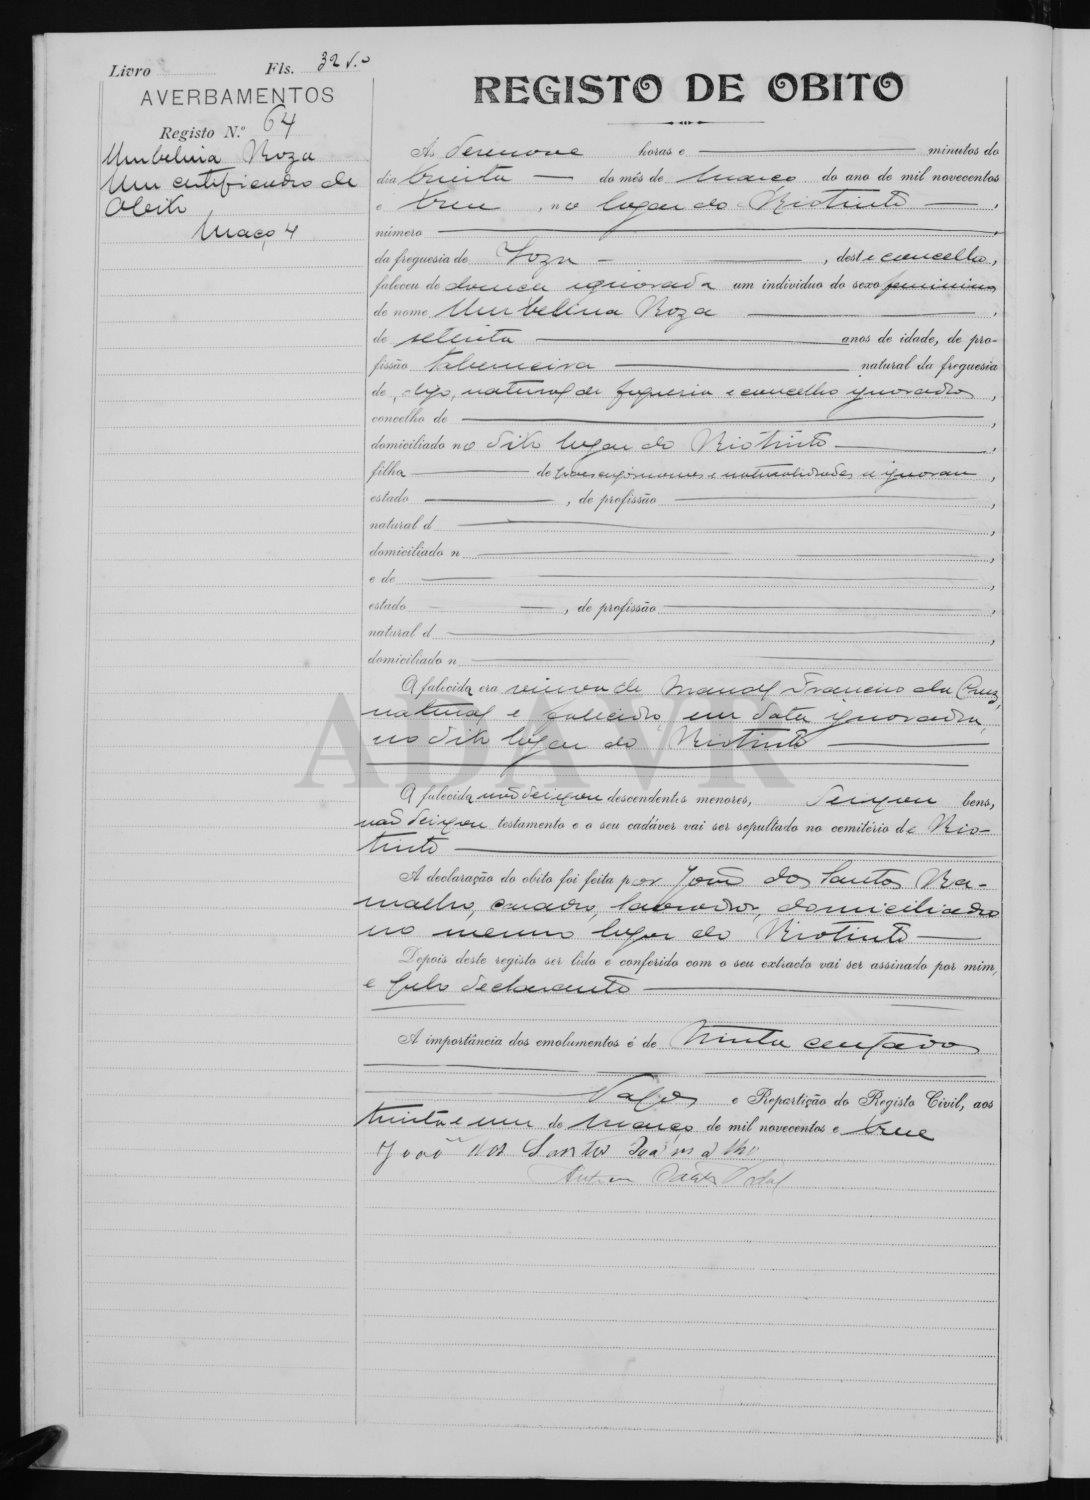 Livro Fls. 32 v.o
AVERBAMENTOS
Registo N.º 64
Umbelina Roza
Um certificado de
Obito
Maço 4
REGISTO DE OBITO
As desenove horas e minutos do
dia trinta do mês de Março do ano de mil novecentos
e treze, no logar do Riotinto,
número
da freguesia de Soza, deste concelho,
faleceu de doença ignorada um individuo do sexo feminino
de nome Umbelina Roza,
de setenta anos de idade, de pro-
fissão taberneira natural da freguesia
de, digo, natural de freguesia e concelho ignorados,
concelho de,
domiciliado no dito logar do Riotinto,
filha de paes cujos nomes e naturalidades se ignoram,
estado, de profissão,
natural d,
domiciliado n,
e de,
estado, de profissão,
natural d,
domiciliado n
A falecida era viuva de Manoel Francisco da Cruz,
natural e falecido em data ignorada,
no dito logar do Riotinto
A falecida não deixou descendentes menores, deixou bens,
não deixou testamento e o seu cadáver vai ser sepultado no cemitério de Rio-
tinto
A declaração do obito foi feita por João dos Santos Ra-
malho, casado, lavrador, domiciliado
no mesmo logar do Riotinto
Depois deste registo ser lido e conferido com o seu extracto vai ser assinado por mim,
e pelo declarante
A importância dos emolumentos é de trinta centavos
Vagos e Repartição do Registo Civil, aos
trinta e um de Março de mil novecentos e treze
João dos Santos Ramalho
ADAVR